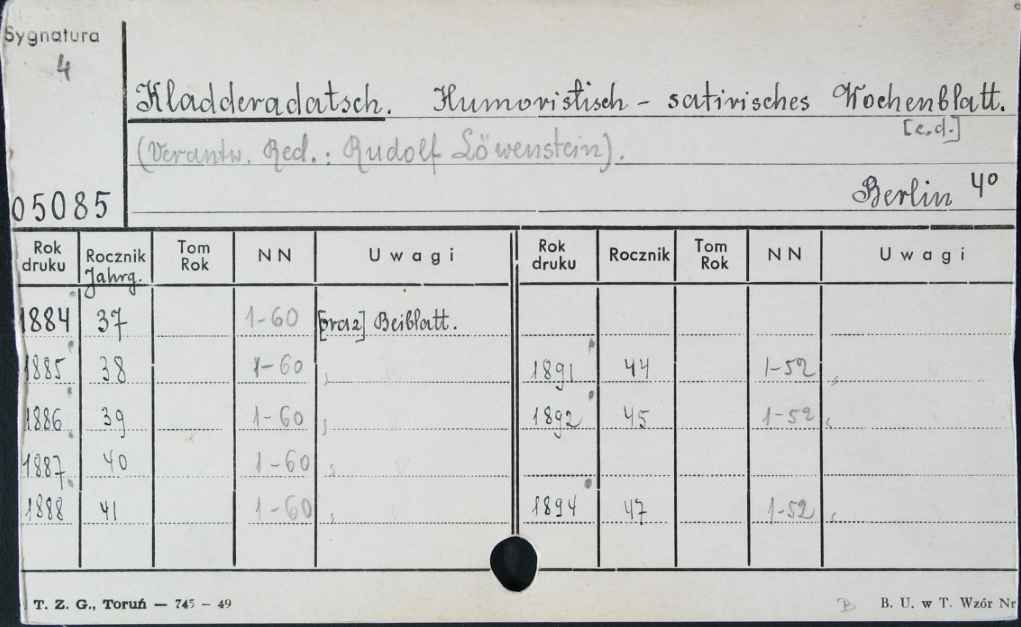 Sygnatura
4
Kladderadatsch. Humoristisch - satirisches Wochenblatt.
[c.d.]
(Verantw. Red.: Rudolf Löwenstein).
05085
Berlin 4°
Rok druku Rocznik Tom Rok NN Uwagi Rok druku Rocznik Tom Rok NN Uwagi
Jahrg.
1884 37 1-60 [oraz] Beiblatt.
1885 38 1-60 " 1891 44 1-52 "
1886 39 1-60 " 1892 45 1-52 "
1887 40 1-60 "
1888 41 1-60 " 1894 47 1-52 "
T. Z. G., Toruń — 745 — 49
B. U. w T. Wzór Nr